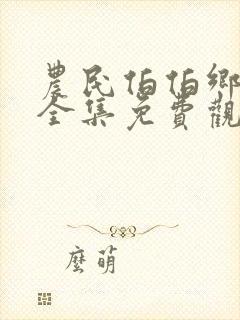 農民伯伯鄉
全集免費觀
麼萌